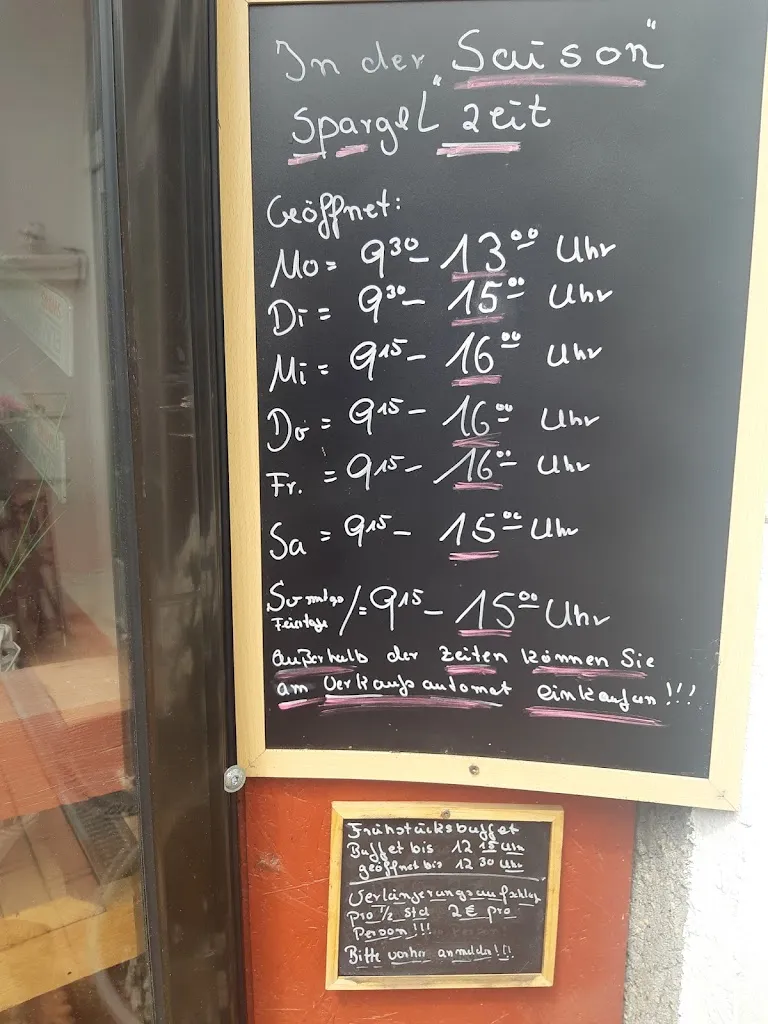 In der "Saison"
Spargel zeit
Geöffnet:
Mo = 9³⁰ - 13⁰⁰ Uhr
Di = 9³⁰ - 15⁰⁰ Uhr
Mi = 9¹⁵ - 16⁰⁰ Uhr
Do = 9¹⁵ - 16⁰⁰ Uhr
Fr. = 9¹⁵ - 16⁰⁰ Uhr
Sa = 9¹⁵ - 15⁰⁰ Uhr
Feiertage /= 9¹⁵ - 15⁰⁰ Uhr
außerhalb der Zeiten können Sie
am Verkaufsautomat einkaufen!!!
Frühstücksbuffet
Buffet bis 12 15 Uhr
geöffnet bis 12 30 Uhr
Verlängerungsaufschlag
pro ½ Std 2€ pro
Person!!!
Bitte vorher anmelden!!!